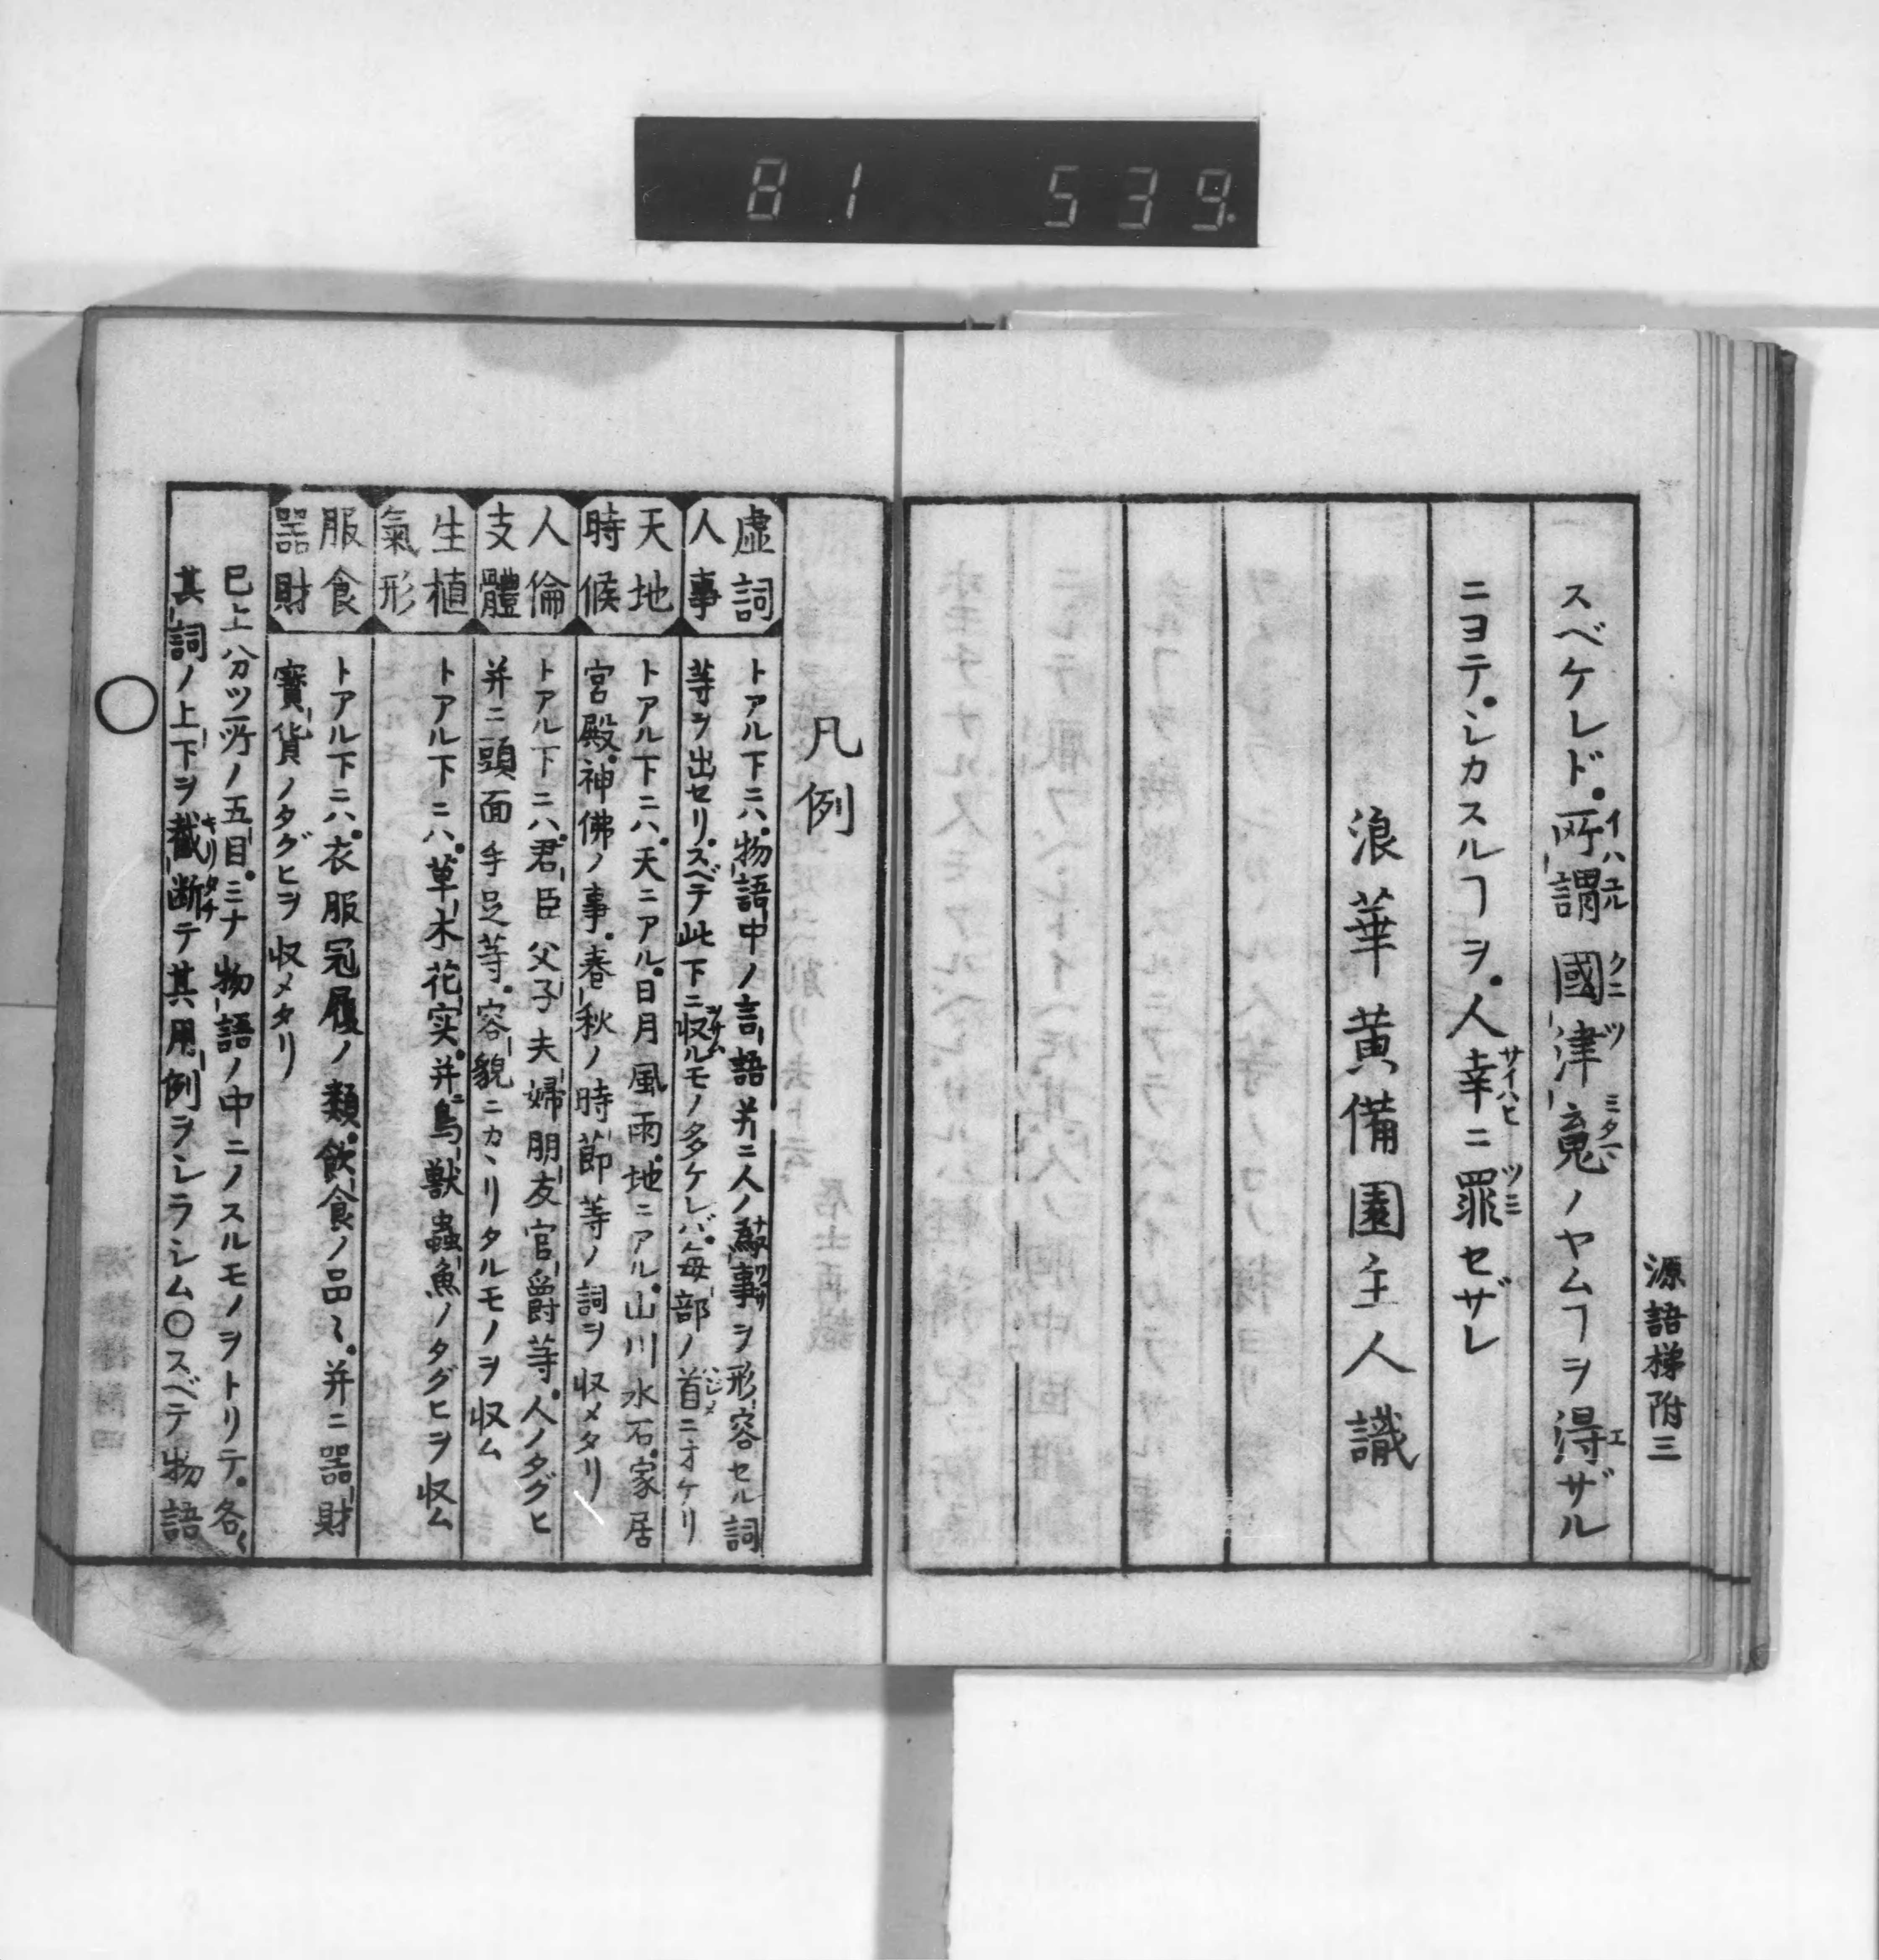 81 539
源語梯附三
スベケレド。所謂國津魂ノヤムヿヲ得ザル
ニヨテ。シカスルヿヲ。人幸ニ罪セザレ
浪華黄備園主人識
凡例
虚詞
人事
トアル下ニハ。物語中ノ言語并ニ人ノ動事ヲ形容セル詞
等ヲ出セリ。スベテ此下ニ収ルモノ多ケレバ。毎部ノ首ニオケリ
天地
時候
トアル下ニハ。天ニアル。日月風雨。地ニアル。山川水石。家居
宮殿。神佛ノ事。春秋ノ時節等ノ詞ヲ収メタリ
人倫
支體
トアル下ニハ。君臣父子夫婦朋友官爵等。人ノタグヒ
并ニ頭面手足等。容貌ニカヽリタルモノヲ収ム
生植
氣形
トアル下ニハ。草木花実。并ニ鳥獣蟲魚ノタグヒヲ収ム
服食
器財
トアル下ニハ。衣服冠履ノ類。飲食ノ品〻。并ニ器財
寳貨ノタグヒヲ収メタリ
已上八分ツ所ノ五目。ミナ物語ノ中ニノスルモノヲトリテ。各〻
其詞ノ上下ヲ截断テ其用例ヲシラシム〇スベテ物語